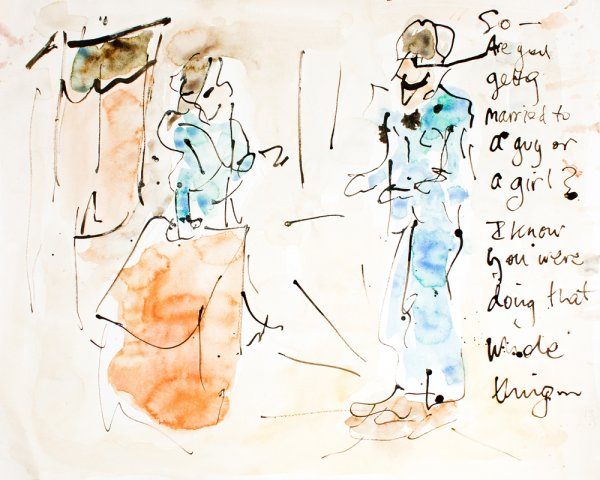 So —
Are you
gettg
married to
a guy or
a girl?
I know
you were
doing that
thing